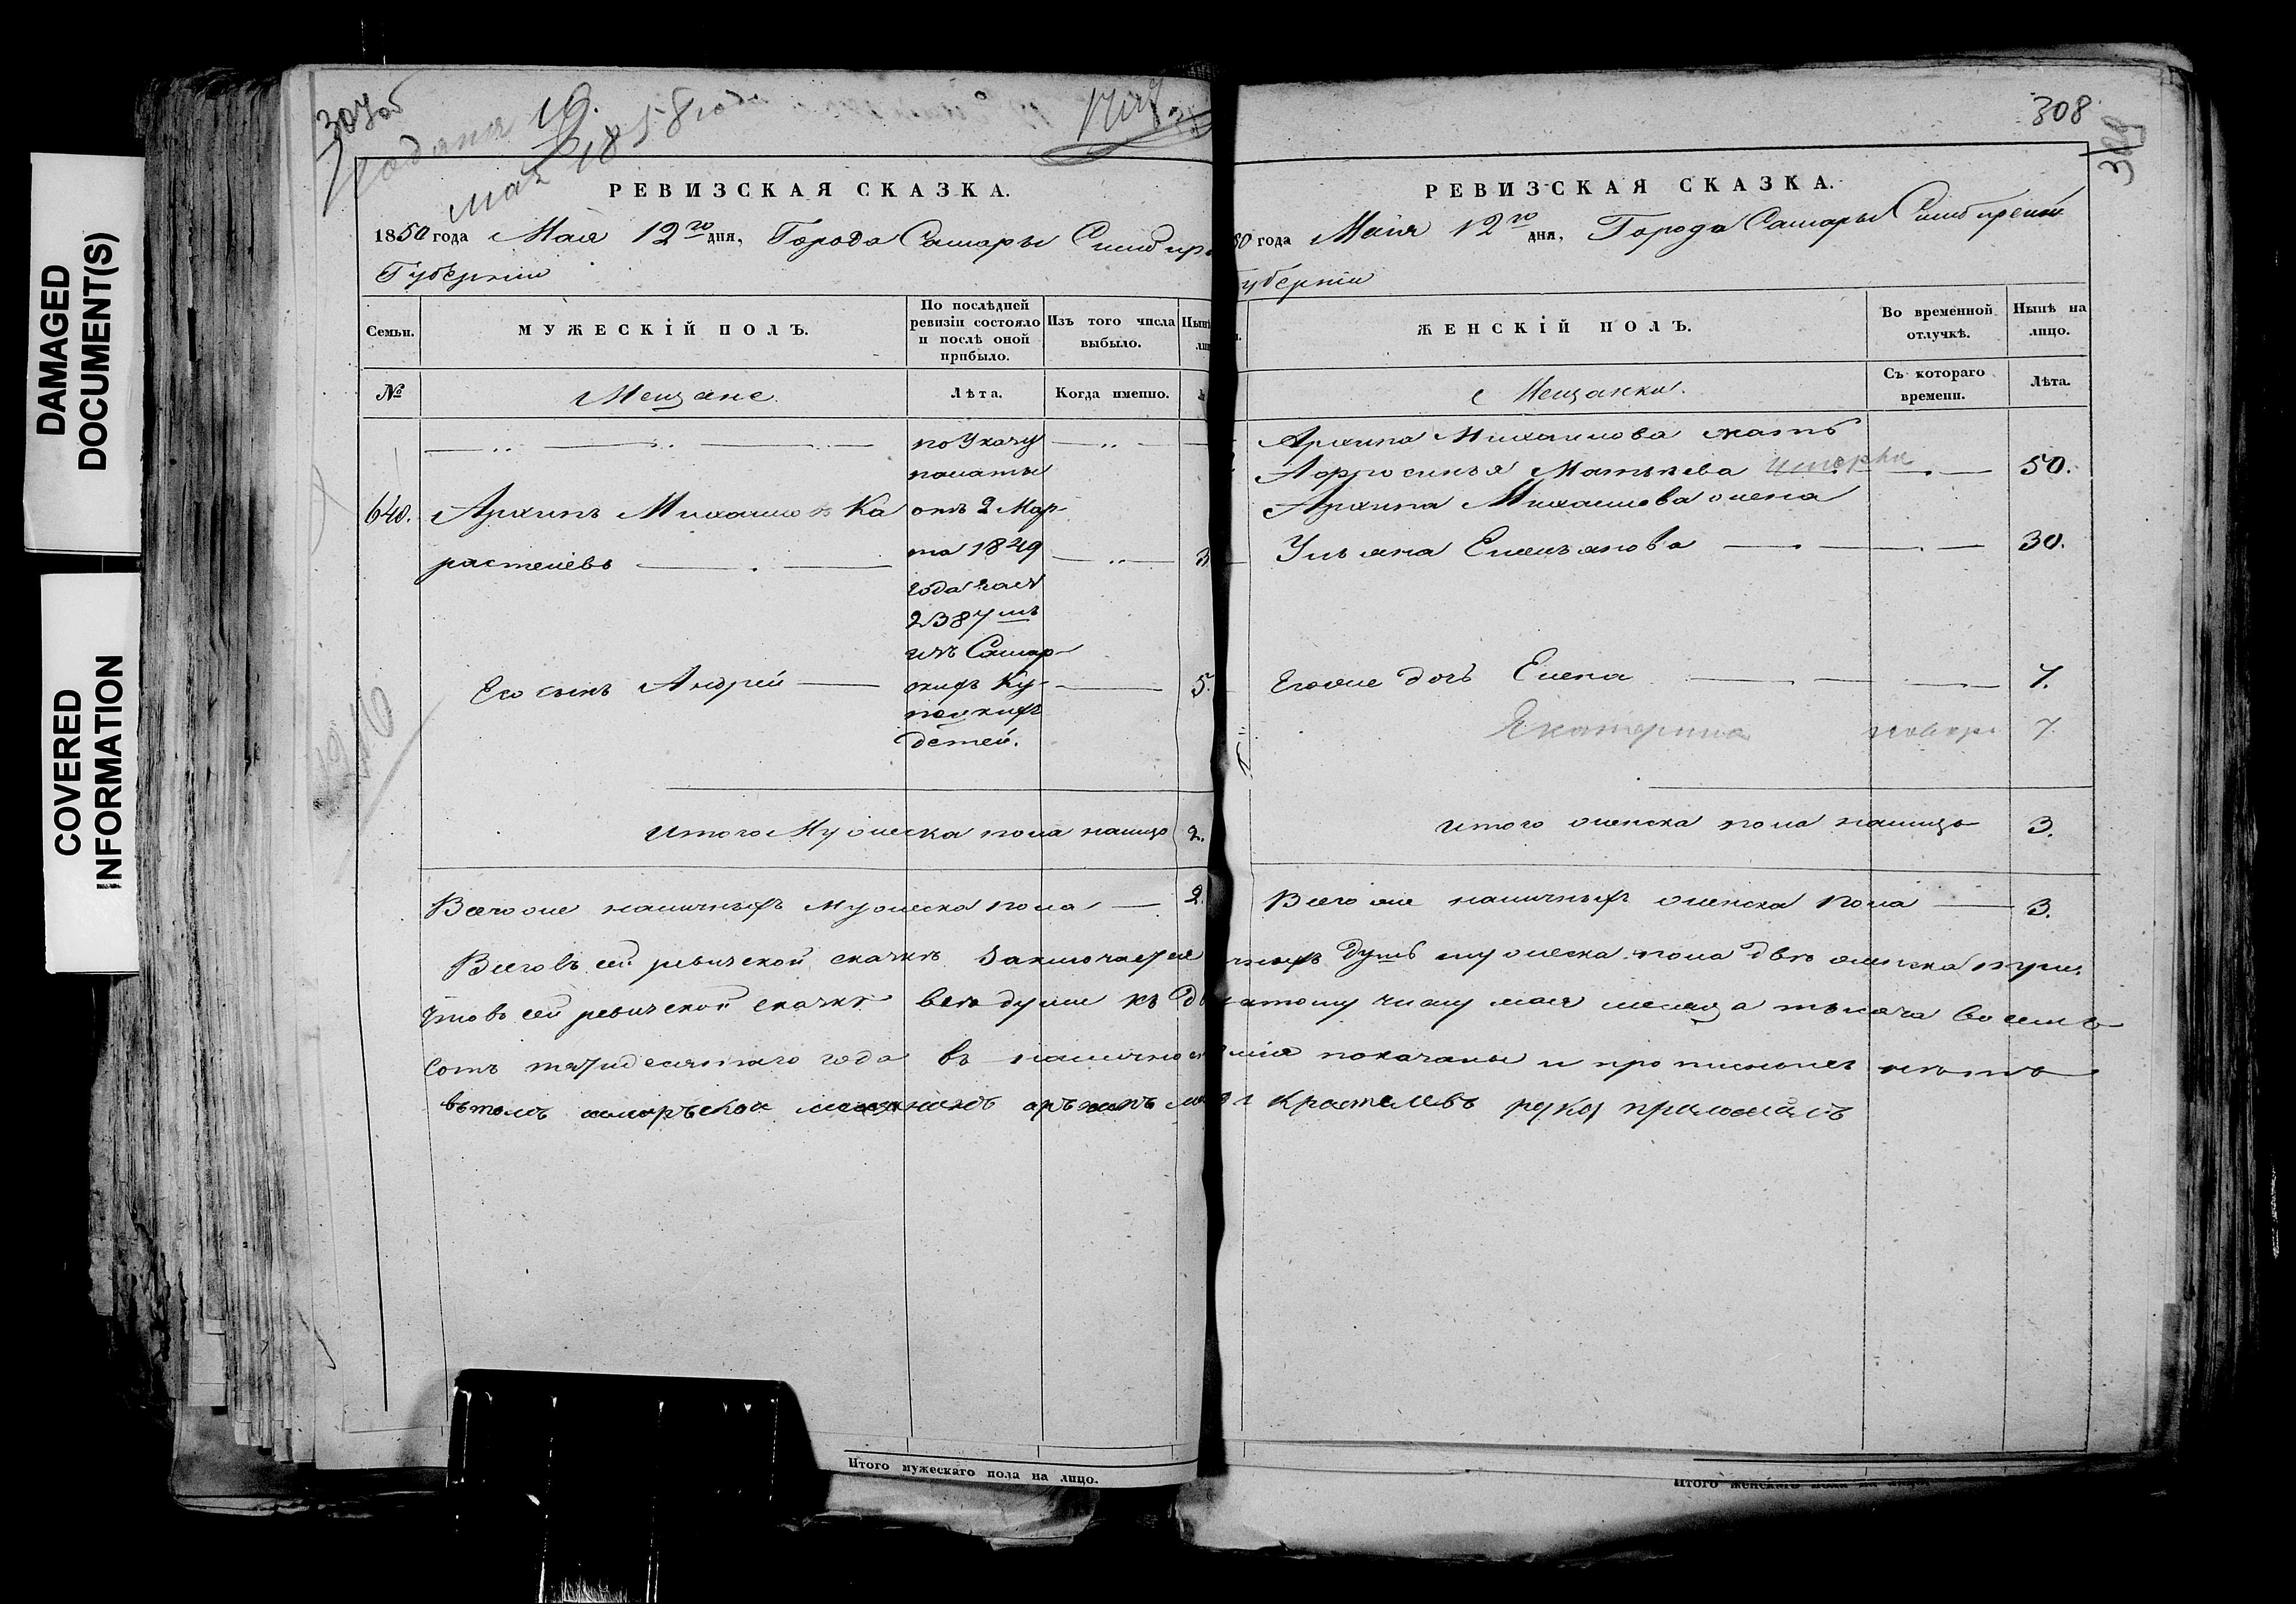 DAMAGED
DOCUMENT(S)
COVERED
INFORMATION
307об
Подана 16
мая 1858 го
РЕВИЗСКАЯ СКАЗКА.
1850 года Мая 12го дня, Города Самары Симбир
Губерніи
Семьи.
МУЖЕСКІЙ ПОЛЪ.
По послѣдней
ревизіи состояло
и послѣ оной
прибыло.
Изъ того числа
выбыло.
Нынѣ
ли
№
Мещане.
Лѣта.
Когда именно.
640.
Архипъ Михаиловъ Ка
растелевъ
по Указу
палаты
отъ 2 Мар-
та 1849
года за №
2387мъ
изъ Самар-
скихъ Ку-
пецкихъ
детей.
3
Его сынъ Андрей
5.
итого Мужеска пола налицо 2.
Всего же наличныхъ мужеска пола 2.
Всего въ сей ревизской сказкѣ заключается
Что въ сей ревизской сказкѣ все души къ дв
сотъ пятидесятаго года въ налично
въ томъ самарской мещанинъ архипъ
Итого мужескаго пола на лицо.
308
РЕВИЗСКАЯ СКАЗКА.
50 года Мая 12го дня, Города Самары Симбирской
убѣрніи
ЖЕНСКІЙ ПОЛЪ.
Во временной
отлучкѣ.
Нынѣ на
лицо.
Мещанки.
Съ котораго
времени.
Лѣта.
Архипа Михаилова мать
Афросинья Матвѣева умерла 50.
Архипа Михаилова жена
Ульяна Емельянова 30.
Его же дочь Елена 7.
Екатерина 7
итого женска пола налицо 3.
Всего же наличныхъ женска пола 3.
душъ мужеска пола двѣ женска три.
атому числу мая месяца тысяча восемь
показаны и прописныхъ нѣтъ
Крастелевъ руку приложилъ
Итого женскаго пола на лицо